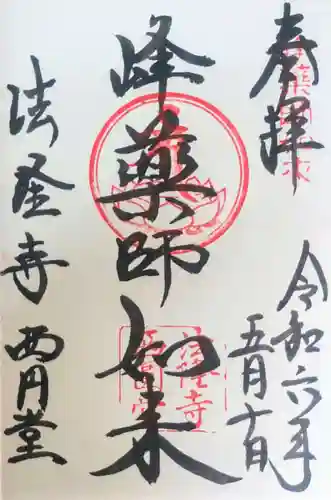 奉拝
令和六年
五月十日
峰薬師如来
法隆寺 西円堂